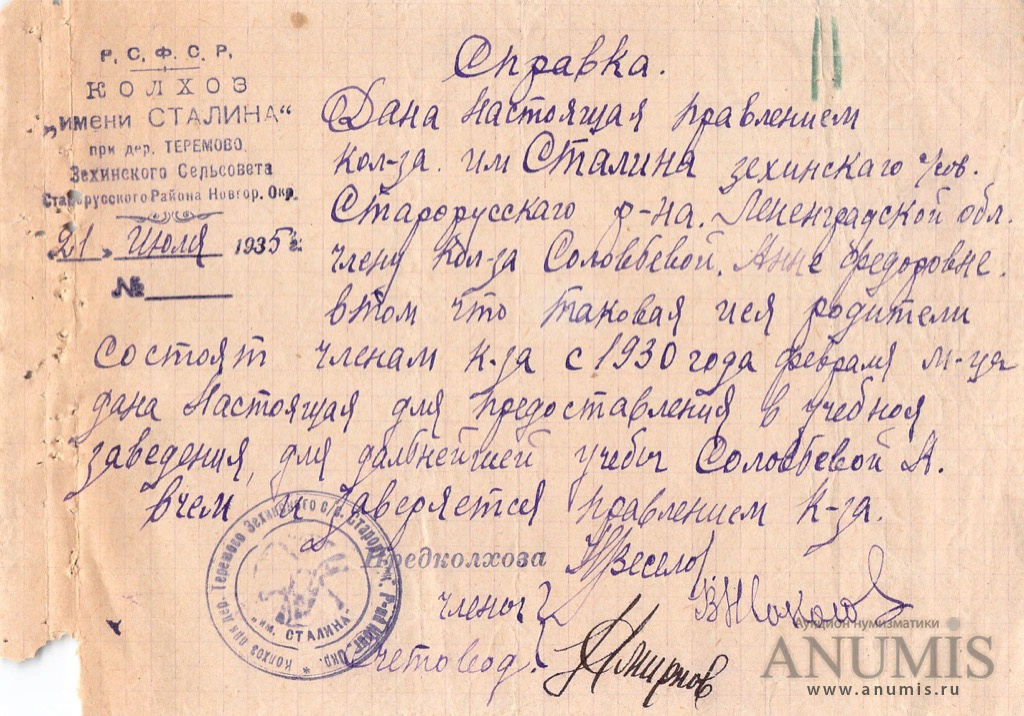 Р. С. Ф. С. Р.
КОЛХОЗ
„имени СТАЛИНА“
при дер. ТЕРЕМОВО,
Зехинского Сельсовета
Старорусского Района Новгор. Окр.
„21„ Июля 1935 г.
№
Справка.
Дана Настоящая правлением
кол-за. им Сталина зехинскаго
Старорусскаго р-на. Ленинградской обл.
члену Кол-за Соловьевой, Анне Федоровне.
втом что таковая иея родители
состоят членам к-за с 1930 года февраля м-ця
дана Настоящая для предоставления в учебноя
заведения, для дальнейшей учебы Соловьевой А.
вчем и заверяется правлением К-за.
Предколхоза Весело
члены
Счетовод. Смирнов
Колхоз при дер. Теремово Зехинского с/с. Старорус. Р-на Новг. Окр.
"им. СТАЛИНА"
Аукцион нумизматики
ANUMIS
www.anumis.ru